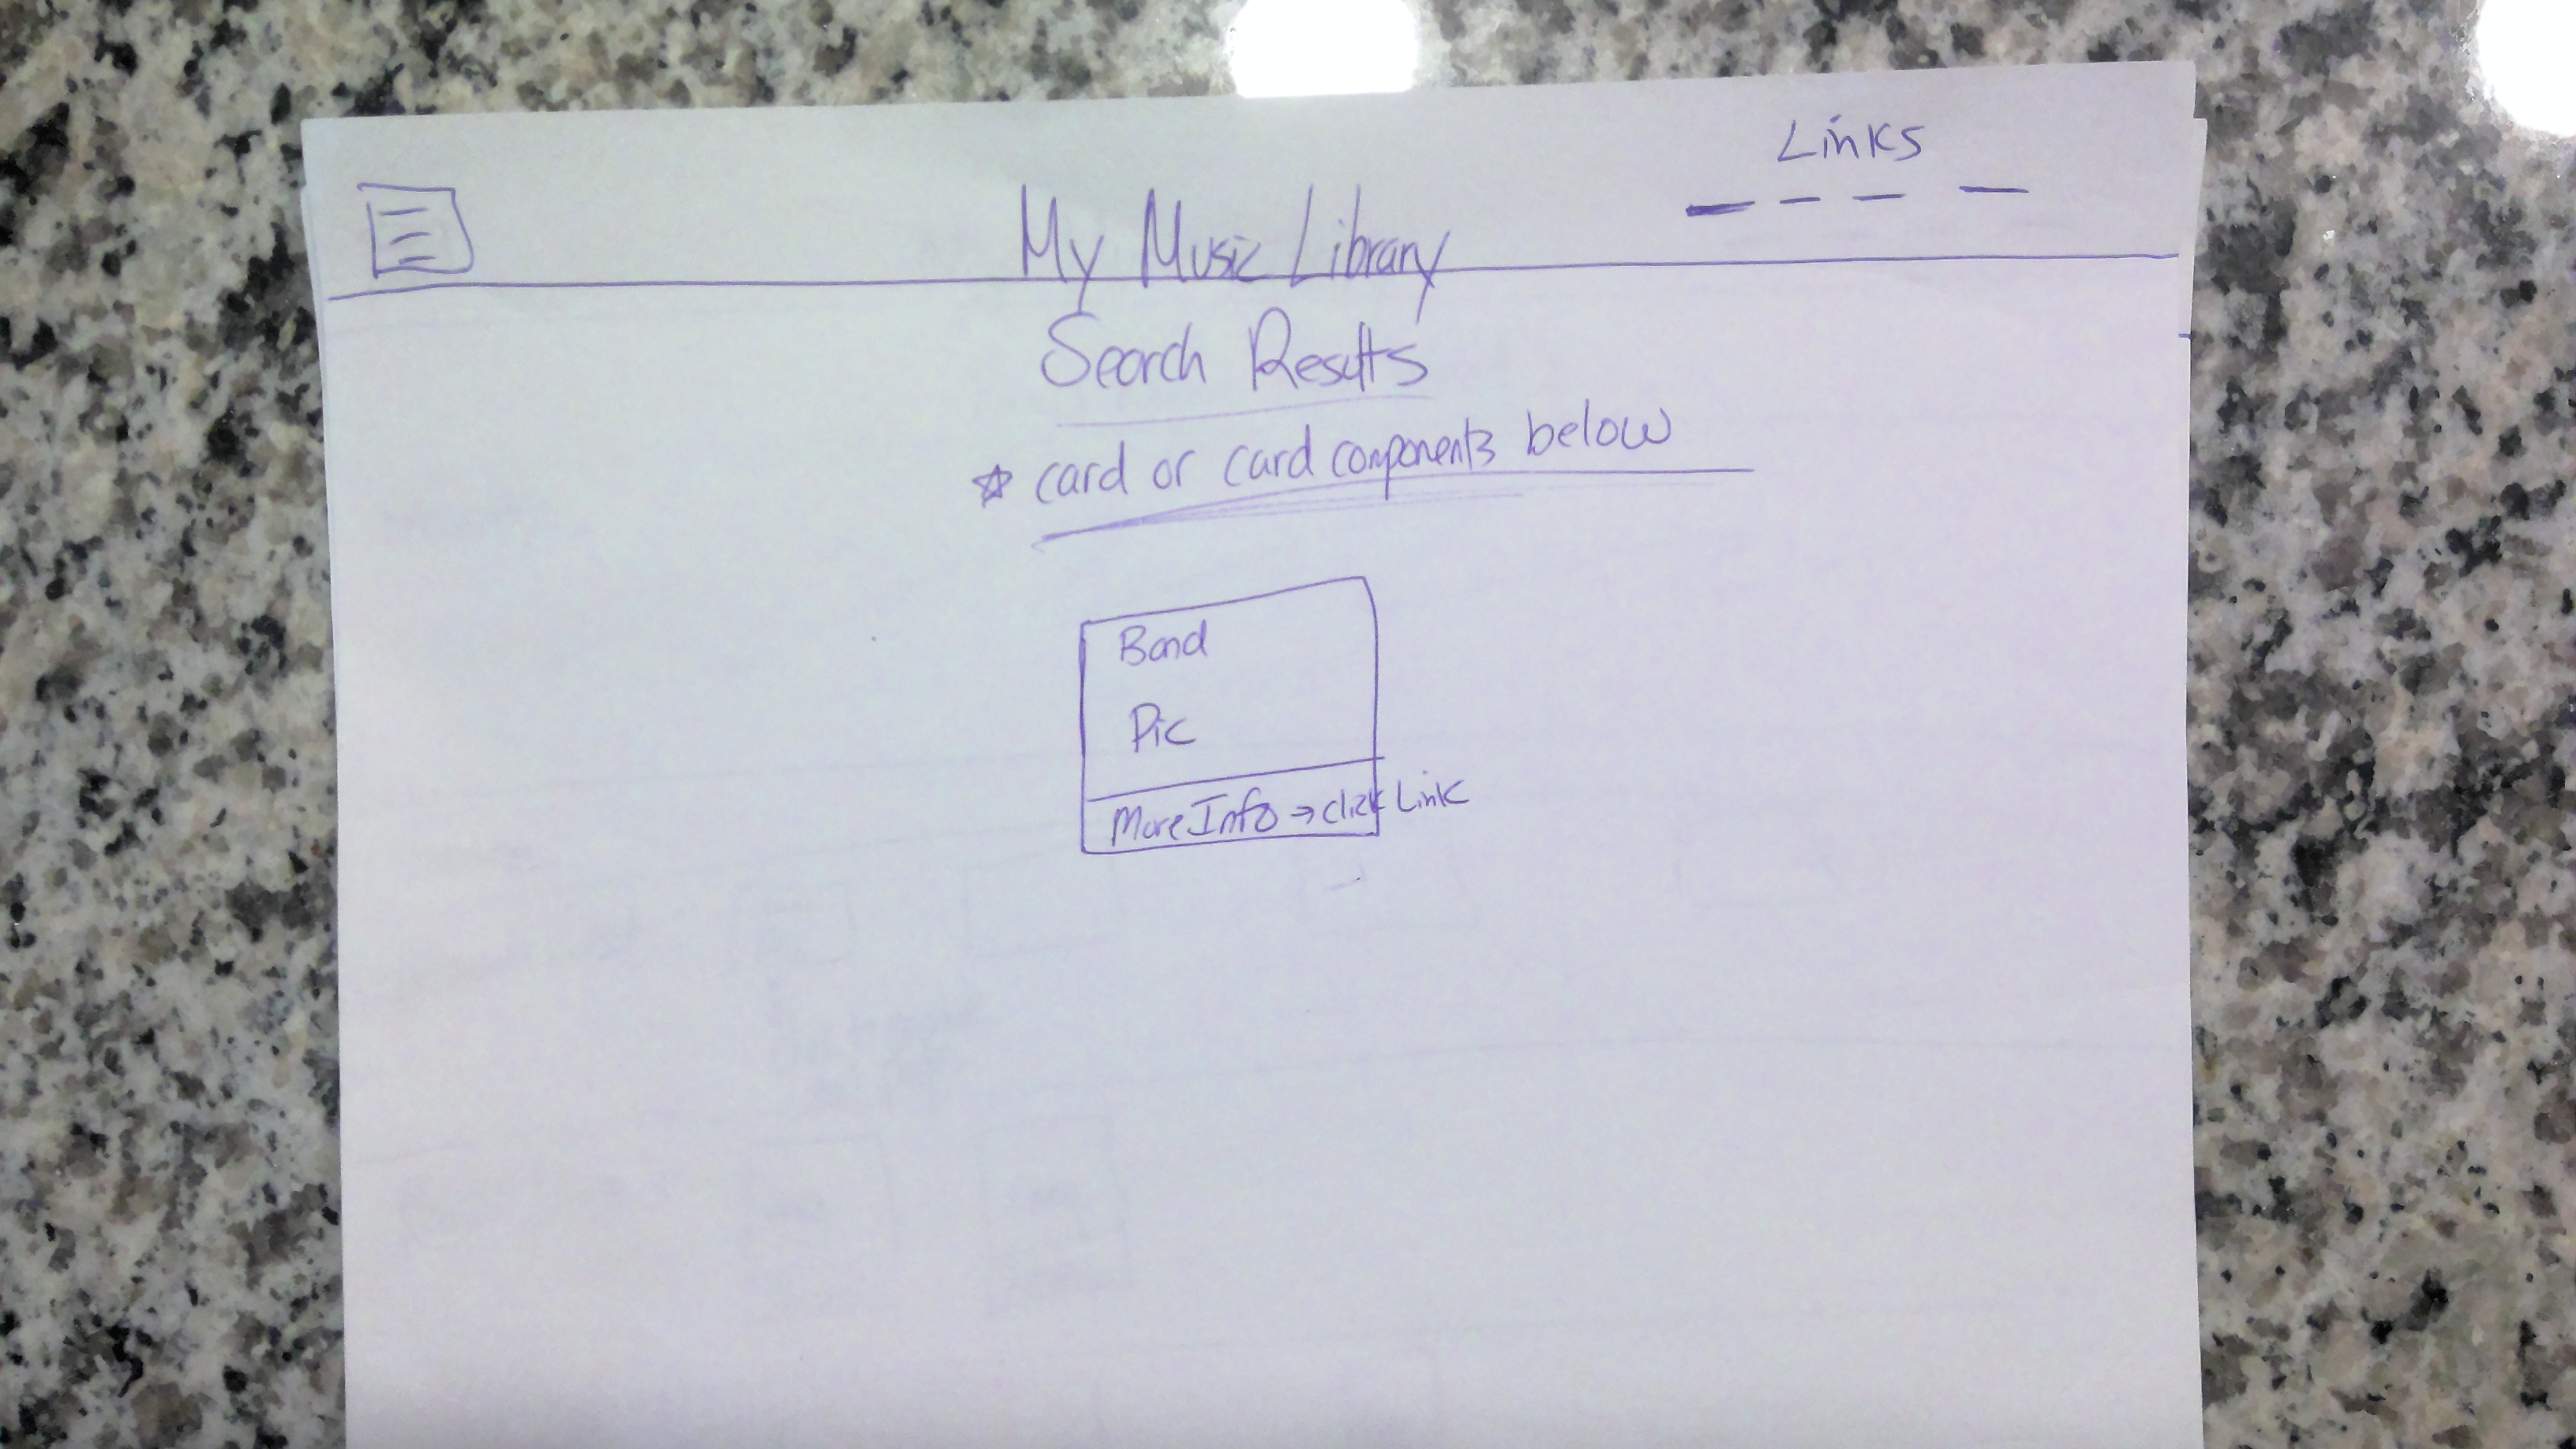 Links
My Music Library
Search Results
☆ card or card components below
Band
Pic
More Info → click Link